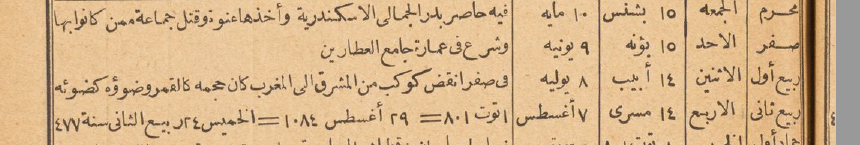 محرم الجمعه ١٥ بشنس ١٠ مايه فيه حاصر بدر الجمالى الاسكندرية وأخذها عنوة وقتل جماعة ممن كانوا بها
صفر الاحد ١٥ بؤنه ٩ يونيه وشرع فى عمارة جامع العطارين
ربيع أول الاثنين ١٤ أبيب ٨ يوليه فى صفر انقض كوكب من المشرق الى المغرب كان حجمه كالقمر وضوؤه كضوئه
ربيع ثانى الاربع ١٤ مسرى ٧ أغسطس ١ توت ٨٠١ = ٢٩ أغسطس ١٠٨٤ = الخميس ٢٤ ربيع الثانى سنة ٤٧٧